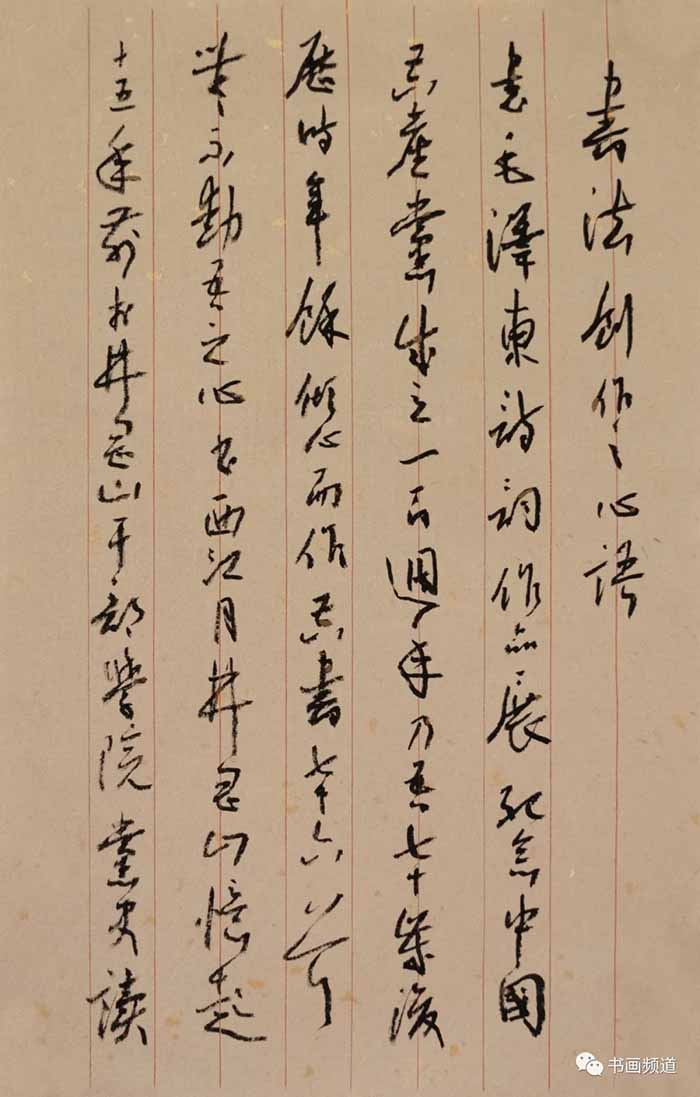 書法創作之心語
書毛澤東詩詞作品展紀念中國
共產黨成立一百週年乃吾七十歲後
歷時年餘傾心而作共書七十六首
無不動吾之心書西江月井岡山憶起
十五年前於井岡山干部學院黨史讀
书画频道